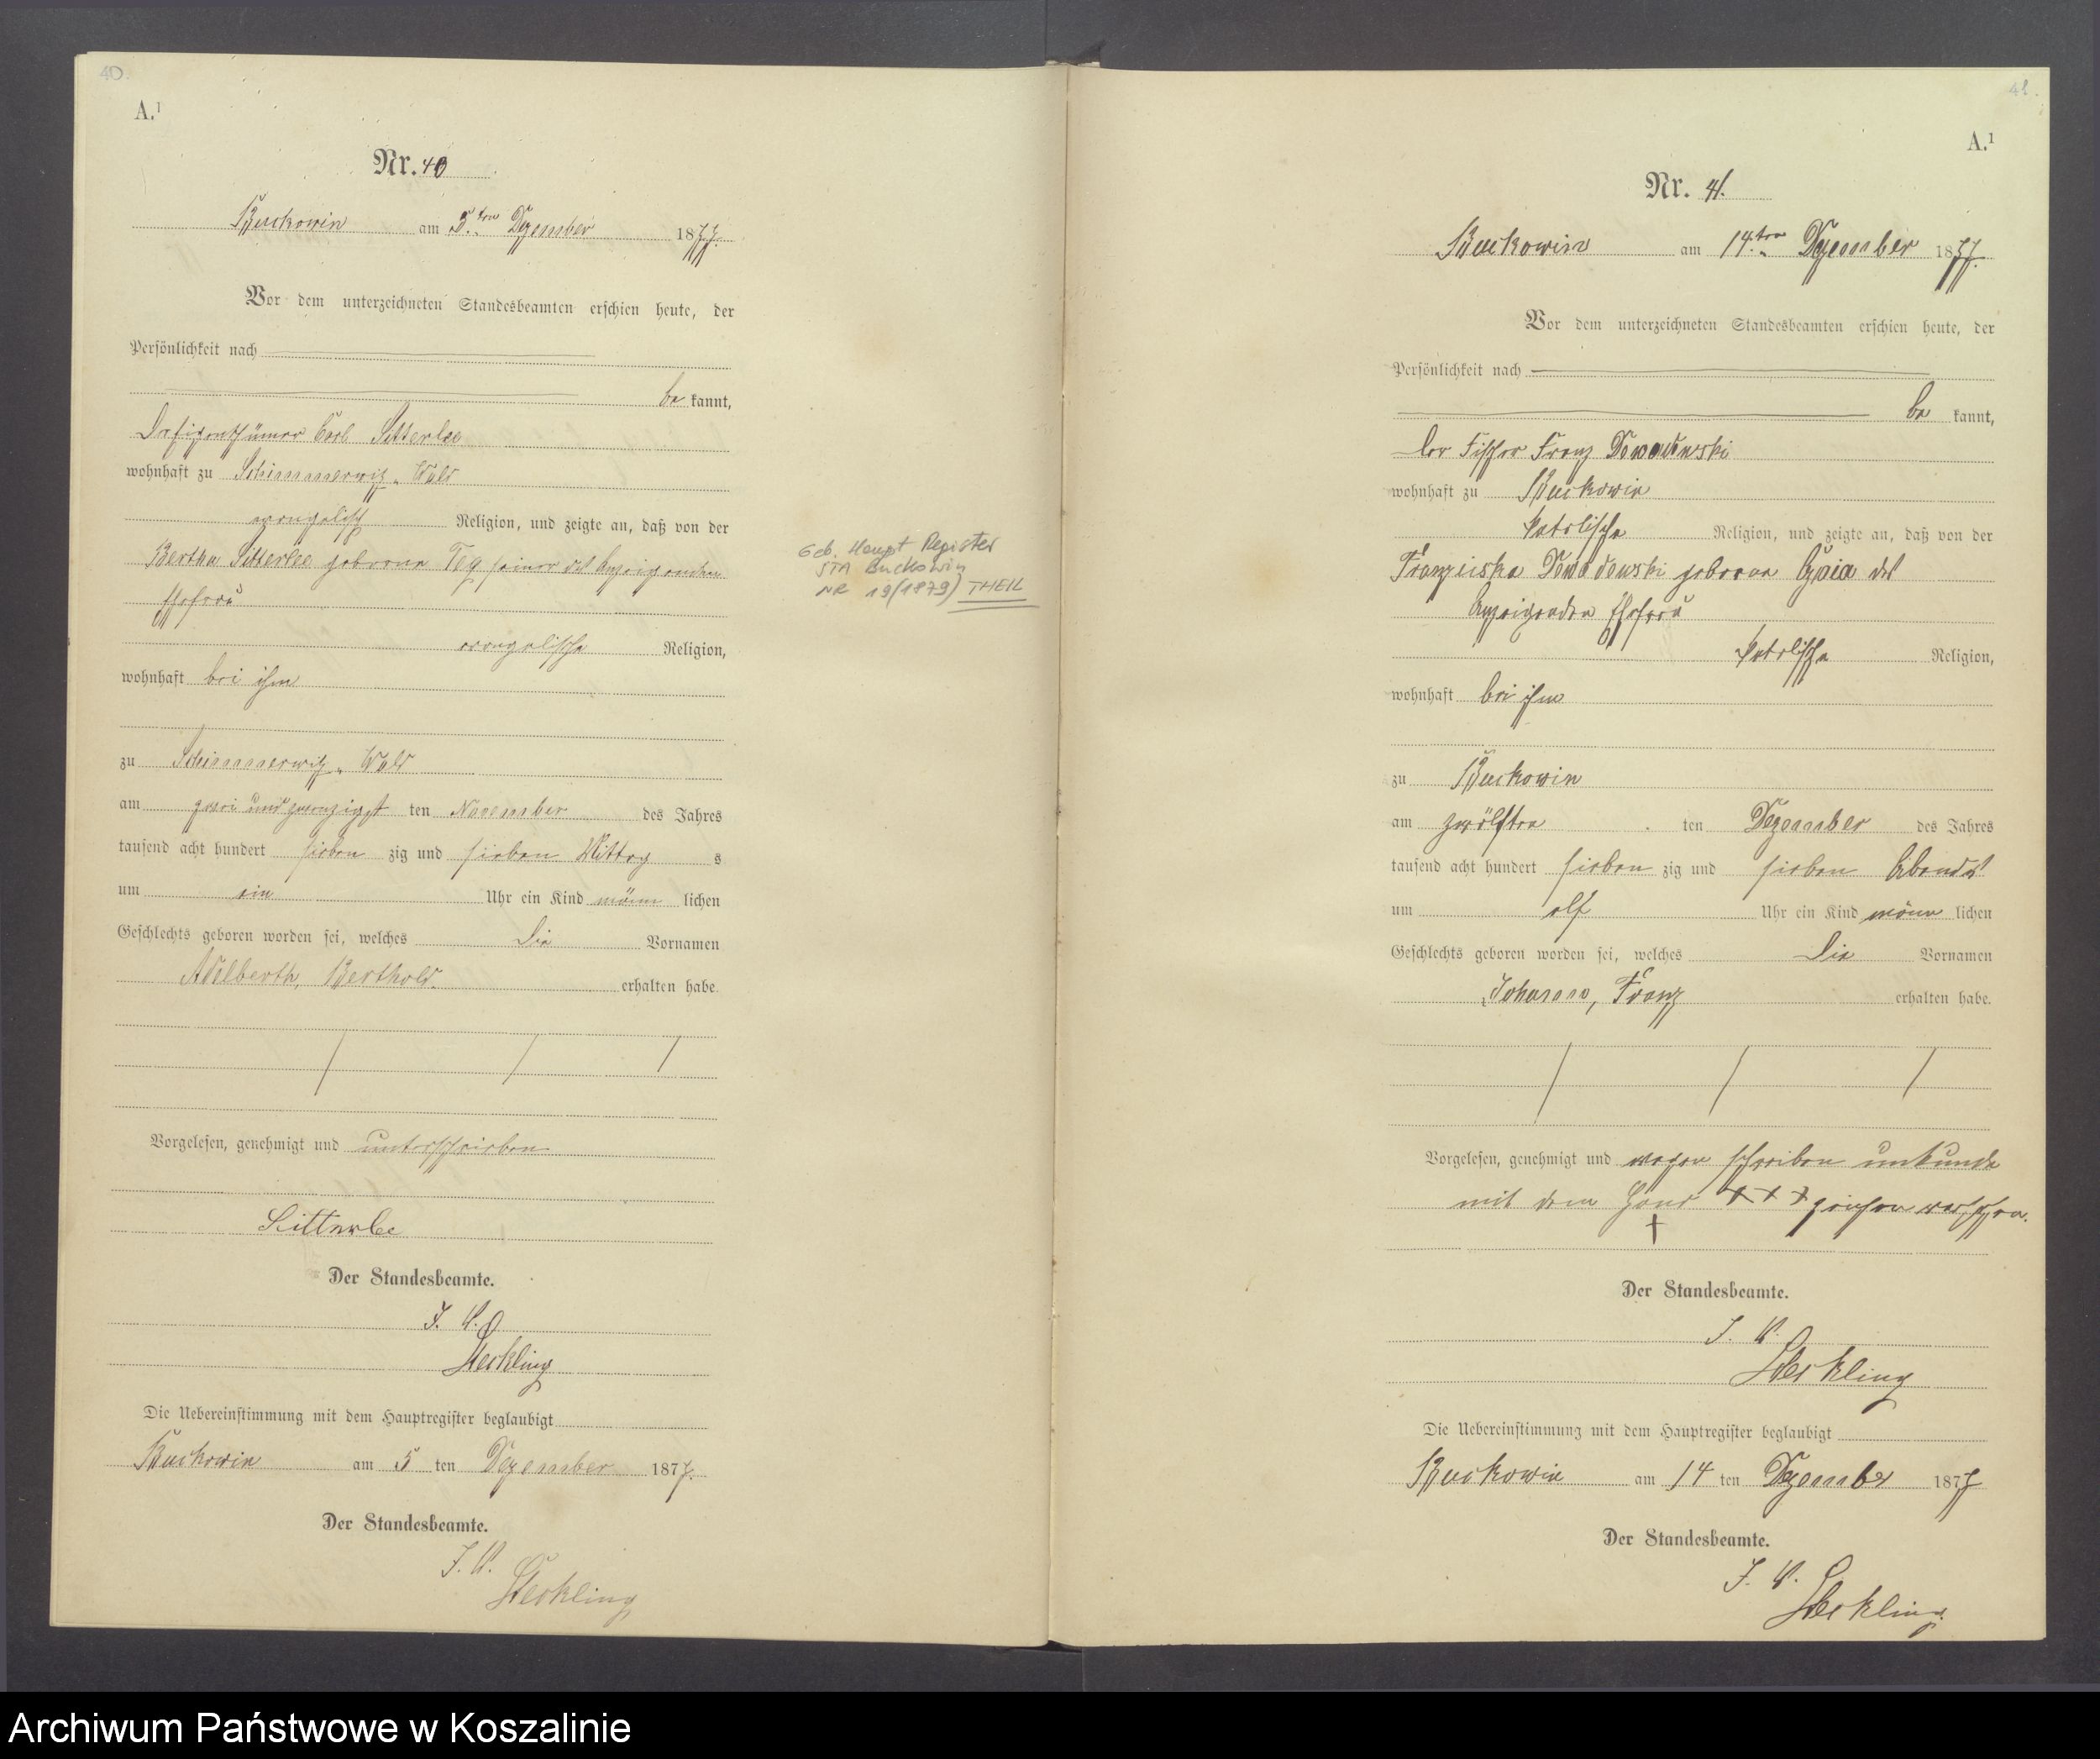 40.
A.¹
Nr. 40
Buckowin am 5.ten Dezember 1877.
Vor dem unterzeichneten Standesbeamten erschien heute, der
Persönlichkeit nach
be kannt,
Der Eigenthümer Carl Sitterlee
wohnhaft zu Schimmerwitz-Wald
evangelisch Religion, und zeigte an, daß von der
Bertha Sitterlee geborene seiner des Anzeigenden
Ehefrau
evangelische Religion,
wohnhaft bei ihm
zu Schimmerwitz-Wald
am zwei und zwanzigst ten November des Jahres
tausend acht hundert sieben zig und sieben Mittag s
um ein Uhr ein Kind männ lichen
Geschlechts geboren worden sei, welches die Vornamen
Adelberth, Berthold. erhalten habe.
Vorgelesen, genehmigt und unterschrieben
Sitterlee
Der Standesbeamte.
J. V.
Heckling
Die Uebereinstimmung mit dem Hauptregister beglaubigt
Buckowin am 5 ten Dezember 1877.
Der Standesbeamte.
J. V.
Heckling
Geb. Haupt Register
STA Buckowin
NR 19(1879) THEIL
41.
A.¹
Nr. 41.
Buckowin am 14.ten Dezember 1877.
Vor dem unterzeichneten Standesbeamten erschien heute, der
Persönlichkeit nach
be kannt,
der Fischer Franz
wohnhaft zu Buckowin
katolische Religion, und zeigte an, daß von der
Franziska geborene des
Anzeigenden Ehefrau
katolische Religion,
wohnhaft bei ihm
zu Buckowin
am zwölften ten Dezember des Jahres
tausend acht hundert sieben zig und sieben Abends
um elf Uhr ein Kind männ lichen
Geschlechts geboren worden sei, welches die Vornamen
Johann, Franz erhalten habe.
Vorgelesen, genehmigt und wegen schreiben unkunde
mit dem Hand +++ zeichen versehen.
+
Der Standesbeamte.
J. V.
Heckling
Die Uebereinstimmung mit dem Hauptregister beglaubigt
Buckowin am 14 ten Dezember 1877
Der Standesbeamte.
J. V.
Heckling
Archiwum Państwowe w Koszalinie